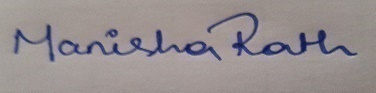 Manisha Rath